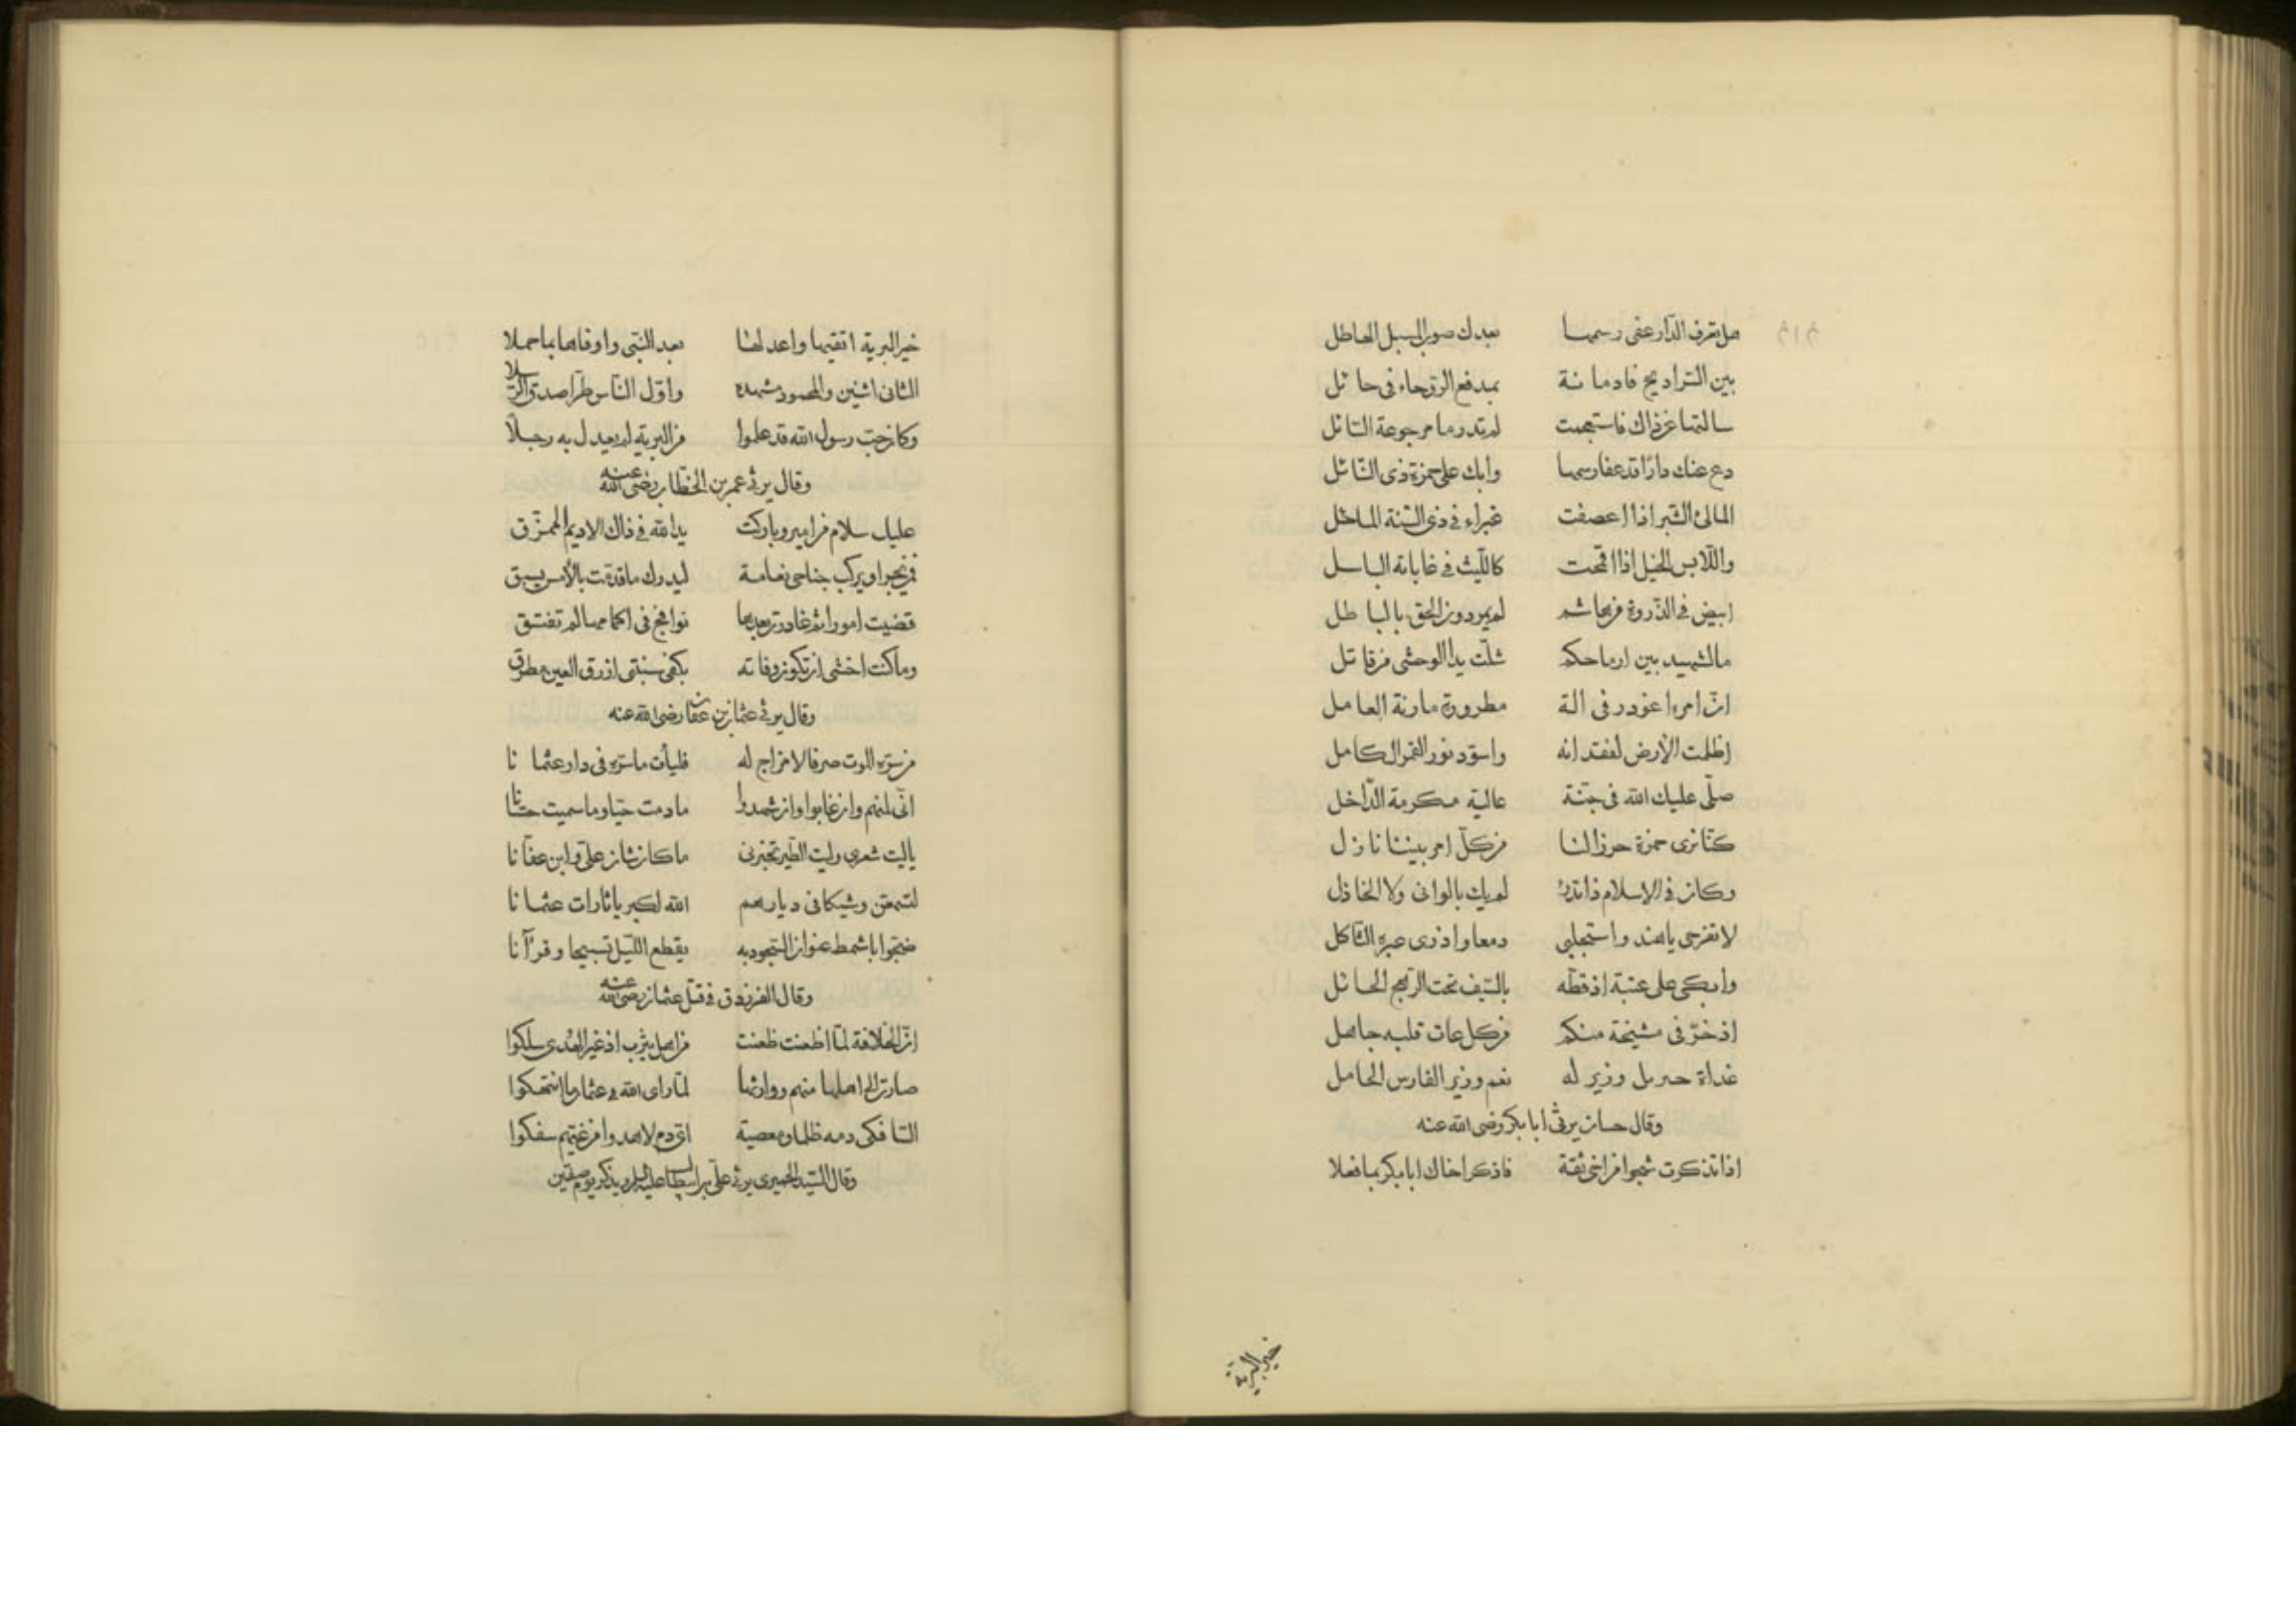 هل تعرف الدّار عفى رسمها بعدك صوب السبل الهاطل
بين السّراديح فادمانة بمدفع الرّوحاء في حائل
سالتها عن ذاك فاستعجمت لم تدر ما مرجوعة السّائل
دع عنك دارًا قد عفا رسمها وابك على حمزة ذى النّائل
المالئ الشّيز اذا اعصفت غبراء فى ذى السّنة الماحل
واللّابس الخيل اذا اقحمت كاللّيث فى غاباته الباسل
ابيض فى الذّروة من هاشم لم يمر دون الحق بالباطل
مال شهيد بين ارماحكم شلّت يدا وحشى من قاتل
انّ امرءا غودر فى الة مطرورة مارنة العامل
اظلمت الأرض لفقدانه واسودّ نور القمر الكامل
صلّى عليك الله فى جنّة عالية مكرمة الدّاخل
كنّا نرى حمزة حرزا لنا من كلّ امر بيننا نازل
وكان فى الإسلام ذا تدرء لم يك بالوانى ولا الخاذل
لا تفرحى يا هند واستحلبى دمعا واذرى عبرة الثّاكل
وابكى على عتبة اذ قطّه بالسّيف تحت الرّهج الحائل
اذ خرّ فى مشيخة منكم من كل عات قلبه جاهل
غداة جبريل وزير له نعم وزير الفارس الحامل
وقال حسان يرثى ابا بكر رضى الله عنه
اذا تذكرت شجوا من اخى ثقة فاذكر اخاك ابا بكر بما فعلا
خير البرية
خير البرية اتقيها واعدلها بعد النّبى واوفاها بما حملا
الثانى اثنين والمحمود مشهده واوّل النّاس طرّا صدق الرّسلا
وكان حبّ رسول الله قد علموا من البرية لم يعدل به رجلا
وقال يرثى عمر بن الخطاب رضى الله عنه
عليك سلام من امير وباركت يد الله فى ذاك الاديم الممزّق
فمن يجر او يركب جناحى نعامة ليدرك ما قدّمت بالأمس يسبق
قضيت امورا ثم غادرت بعدها نوافج فى اكمامها لم تفتق
وما كنت اخشى ان تكون وفاته بكفى سبنتى ازرق العين مطرق
وقال يرثى عثمان بن عفان رضى الله عنه
من سرّه الموت صرفا لا مزاج له فليأت ماسره فى دار عثمانا
انّى لمنهم وان غابوا وان شهدوا مادمت حيّا وما سميت حسّانا
ياليت شعرى وليت الطّير تخبرنى ماكان شان علىّ وابن عفّانا
لتسمعن وشيكا فى ديارهم الله اكبر يا ثارات عثمانا
ضحّوا باشمط عنوان السّجود به يقطع اللّيل تسبيحا وقرآنا
وقال الفرزدق فى قتل عثمان رضى الله عنه
انّ الخلافة لمّا اظعنت ظعنت من اهل يثرب اذ غير الهدى سلكوا
صارت الى اهلها منهم ووارثها لمّا راى الله فى عثمان ما انتهكوا
السّافكى دمه ظلما ومعصية اىّ دم لا هدوا من غيّهم سفكوا
وقال السّيد الحميرى يرثى علىّ بن ابيطالب عليه السلام ويذكر يوم صفّين